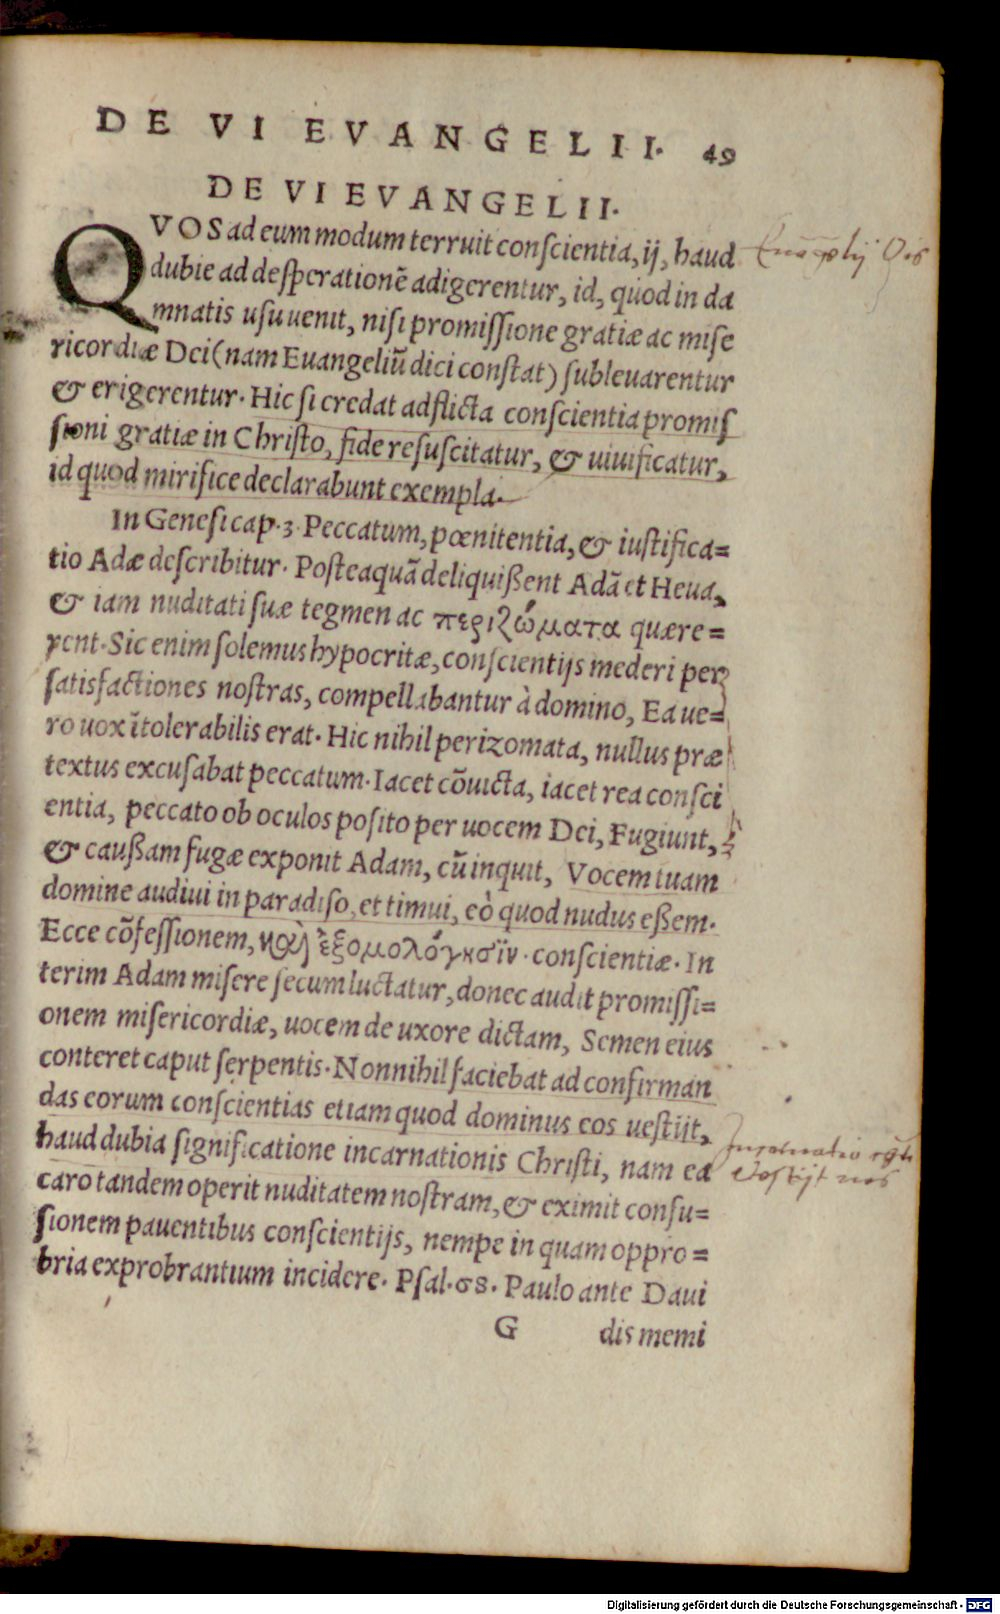 DE VI EVANGELII. 49
DE VI EVANGELII.
QVOS ad eum modum terruit conscientia, ij, haud
dubie ad desperationē adigerentur, id, quod in da
mnatis usu uenit, nisi promissione gratiæ ac mise
ricordiæ Dei (nam Euangeliū dici constat) subleuarentur
& erigerentur. Hic si credat adflicta conscientia promis
sioni gratiæ in Christo, fide resuscitatur, & uiuificatur,
id quod mirifice declarabunt exempla.
In Genesi cap. 3. Peccatum, pœnitentia, & iustifica=
tio Adæ describitur. Posteaquā deliquißent Adā et Heua,
& iam nuditati suæ tegmen ac περιζώματα quære=
rent. Sic enim solemus hypocritæ, conscientijs mederi per
satisfactiones nostras, compellabantur à domino, Ea ue=
ro uox ītolerabilis erat. Hic nihil perizomata, nullus præ
textus excusabat peccatum. Iacet cōuicta, iacet rea consci
entia, peccato ob oculos posito per uocem Dei, Fugiunt,
& caußam fugæ exponit Adam, cū inquit, Vocem tuam
domine audiui in paradiso, et timui, eò quod nudus eßem.
Ecce cōfessionem, καὶ ἐξομολόγησϊν. conscientiæ. In
terim Adam misere secum luctatur, donec audit promissi=
onem misericordiæ, uocem de uxore dictam, Semen eius
conteret caput serpentis. Nonnihil faciebat ad confirman
das eorum conscientias etiam quod dominus eos uestijt,
haud dubia significatione incarnationis Christi, nam ea
caro tandem operit nuditatem nostram, & eximit confu=
sionem pauentibus conscientijs, nempe in quam oppro=
bria exprobrantium incidere. Psal. 68. Paulo ante Daui
G dis memi
Euāgelij Vis
Incarnatio
Vestijt nos
Digitalisierung gefördert durch die Deutsche Forschungsgemeinschaft - DFG